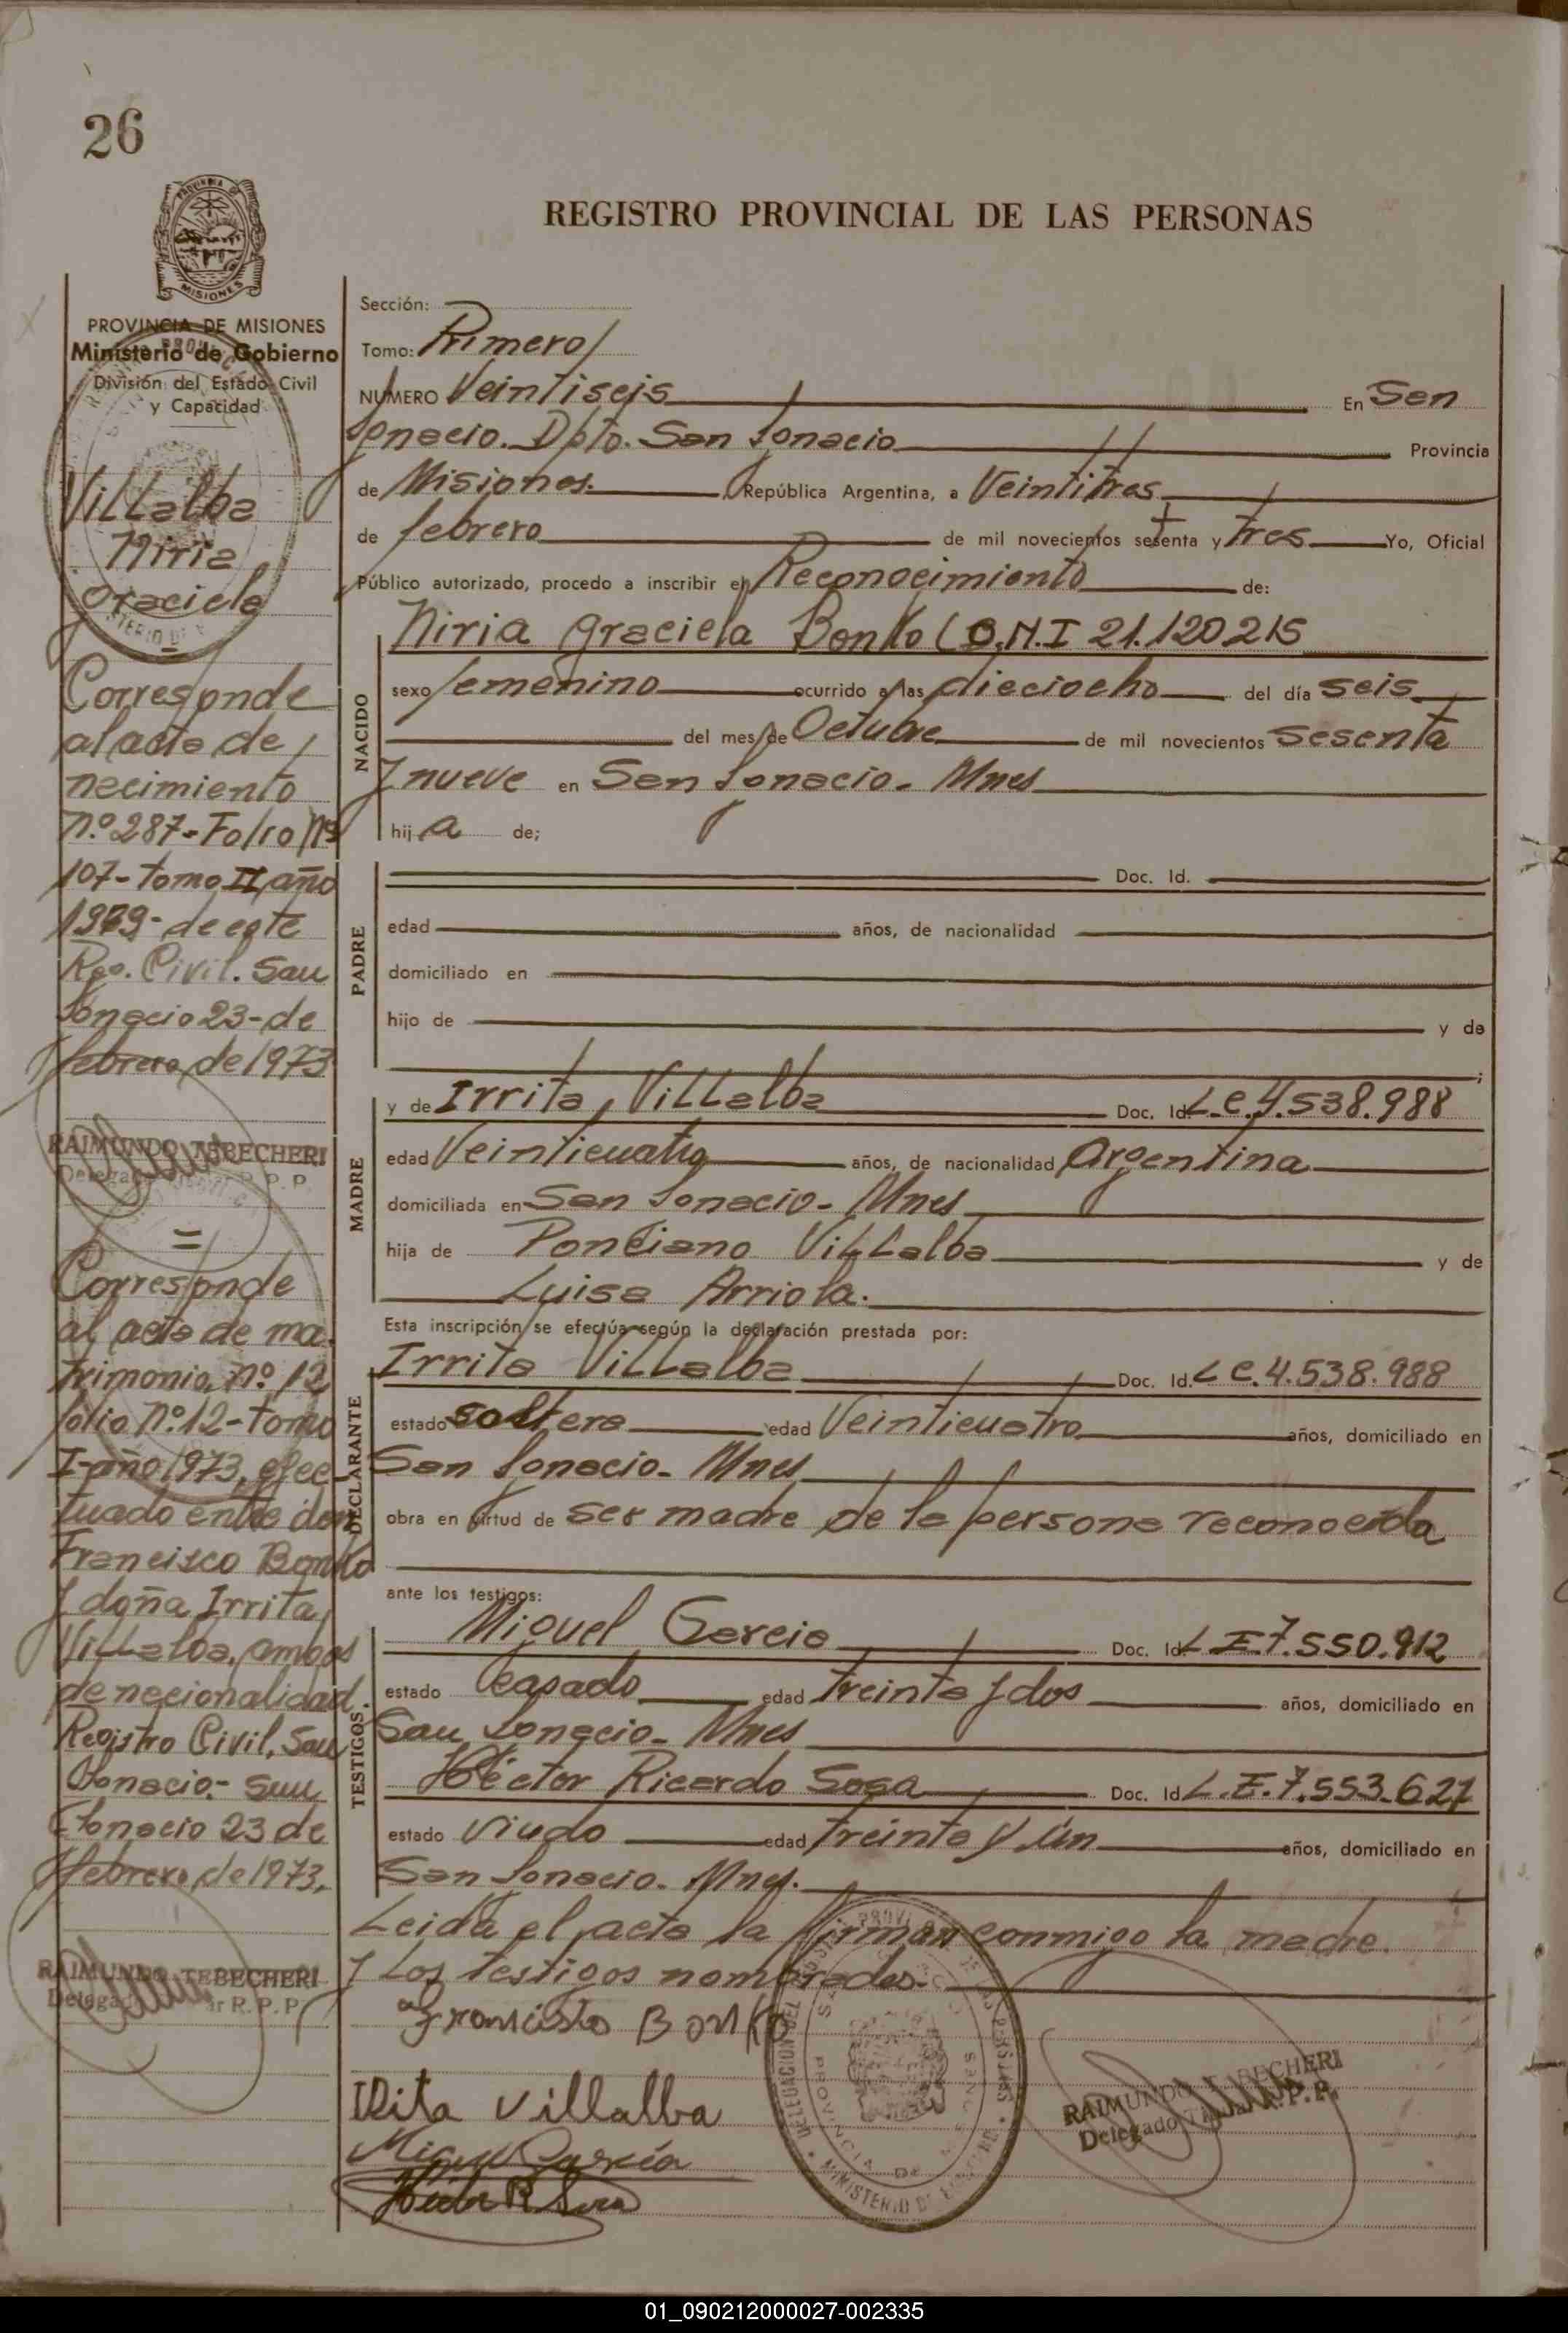 26
REGISTRO PROVINCIAL DE LAS PERSONAS
MISIONES
PROVINCIA DE MISIONES
Ministerio de Gobierno
División del Estado Civil
y Capacidad
Villalba
Niria
Graciela
Corresponde
al acta de
nacimiento
N.º 287-Folio Nº
107-tomo II, año
1969- de este
Reg. Civil. San
Ignacio 23-de
febrero de 1973
RAIMUNDO TEBECHERI
Corresponde
al acta de ma-
trimonio, nº. 12
folio Nº.12-tomo
I-año 1973, efec
tuado entre don
Francisco Bonko
y doña Irrita
Villalba, ambos
de nacionalidad.
Registro Civil, San
Ignacio.- San
Ignacio 23 de
febrero, de 1973,
RAIMUNDO TEBECHERI
Sección:
Tomo: Primero
NUMERO Veintiseis En San
Ignacio. Dpto. San Ignacio Provincia
de Misiones. República Argentina, a Veintitres
de febrero de mil novecientos setenta y tres Yo, Oficial
Público autorizado, procedo a inscribir el Reconocimiento de:
NACIDO
Niria Graciela Bonko (D.N.I 21.120215
sexo femenino ocurrido a las dieciocho del día seis
del mes de Octubre de mil novecientos sesenta
y nueve en San Ignacio. Mnes
hij a de;
PADRE
Doc. Id.
edad años, de nacionalidad
domiciliado en
hijo de y de
MADRE
y de Irrita, Villalba Doc. Id. L.C.4.538.988
edad Veinticuatro años, de nacionalidad Argentina
domiciliada en San Ignacio- Mnes
hija de Ponciano Villalba y de
Luisa Arriola.
Esta inscripción se efectúa según la declaración prestada por:
DECLARANTE
Irrita Villalba Doc. Id. L C.4.538.988
estado soltera edad Veinticuatro años, domiciliado en
San Ignacio- Mnes
obra en virtud de ser madre de la persona reconocida
ante los testigos:
TESTIGOS
Miguel Garcia Doc. Id. L E.7.550.912
estado Casado edad treinta y dos años, domiciliado en
San Ignacio- Mnes
Héctor Ricardo Sosa Doc. Id. L.E.7.553.621
estado Viudo edad treinta y Un años, domiciliado en
San Ignacio. Mnes.
Leida el acta la firman conmigo la madre.
y los testigos nombrados.-
Francisto Bonko
IRita Villalba
Miguel García
Hector R. Sosa
RAIMUNDO TEBECHERI
Delegado Titular R.P.P.
01_090212000027-002335